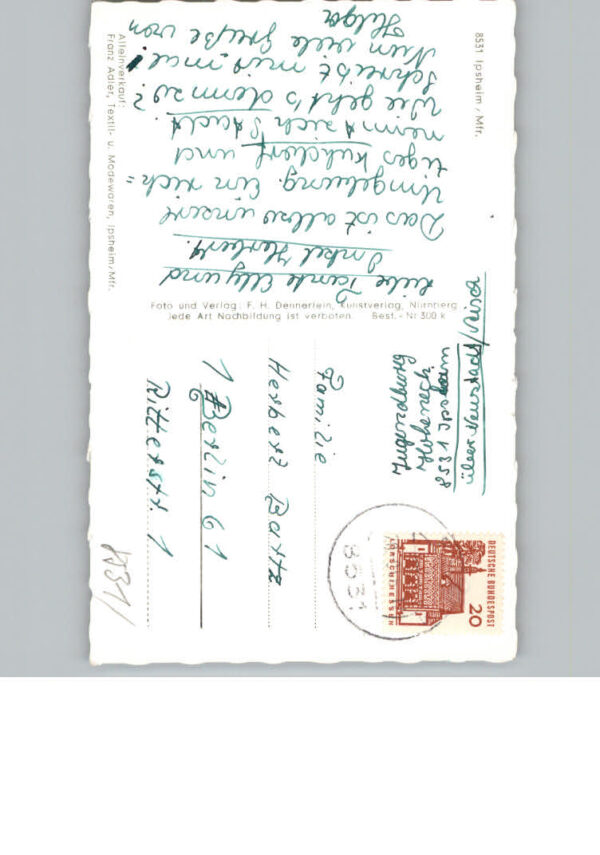 8531 Ipsheim/Mfr.
Liebe Tante Elly und
Onkel Herbert.
Das ist alles unsere
Umgebung. Ein rich=
tiges Kuhdorf und
nennt sich Stadt.
Wie geht's denn so?
Schreibt mir mal
Nun viele Grüße von
Helga
Alleinverkauf:
Franz Adler, Textil- u. Modewaren, Ipsheim/Mfr.
Foto und Verlag: F. H. Dennerlein, Kunstverlag, Nürnberg
Jede Art Nachbildung ist verboten. Best.-Nr. 300 k
Jugend
8531 Ipsheim
über Neustadt/Aisch
DEUTSCHE BUNDESPOST
20
LORSCH/HESSEN
8531
Familie
Herbert Bartz
1 Berlin 61
Ritterstr. 1
8531/